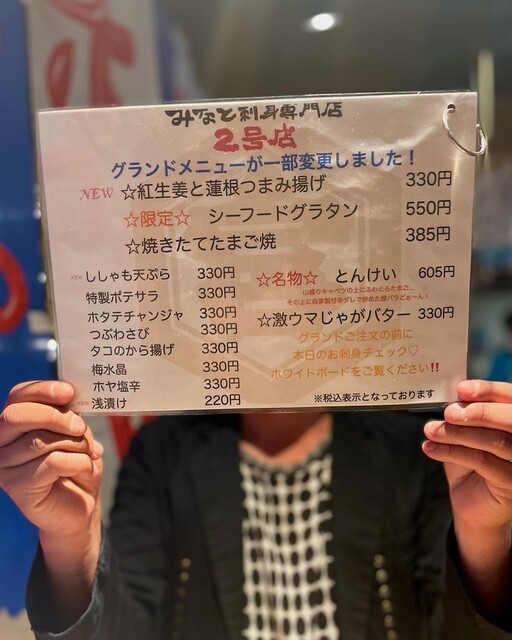 みなと刺身専門店
2号店
グランドメニューが一部変更しました！
NEW ☆紅生姜と蓮根つまみ揚げ 330円
☆限定☆ シーフードグラタン 550円
☆焼きたてたまご焼 385円
NEW ししゃも天ぷら 330円
特製ポテサラ 330円
ホタテチャンジャ 330円
つぶわさび 330円
タコのから揚げ 330円
梅水晶 330円
ホヤ塩辛 330円
NEW 浅漬け 220円
☆名物☆ とんけい 605円
山盛りキャベツの上にふわとろたまご、
その上に自家製甘辛ダレで炒めた豚バラどぉーん！
☆激ウマじゃがバター 330円
グランドご注文の前に
本日のお刺身チェック♡
ホワイトボードをご覧ください‼
※税込表示となっております